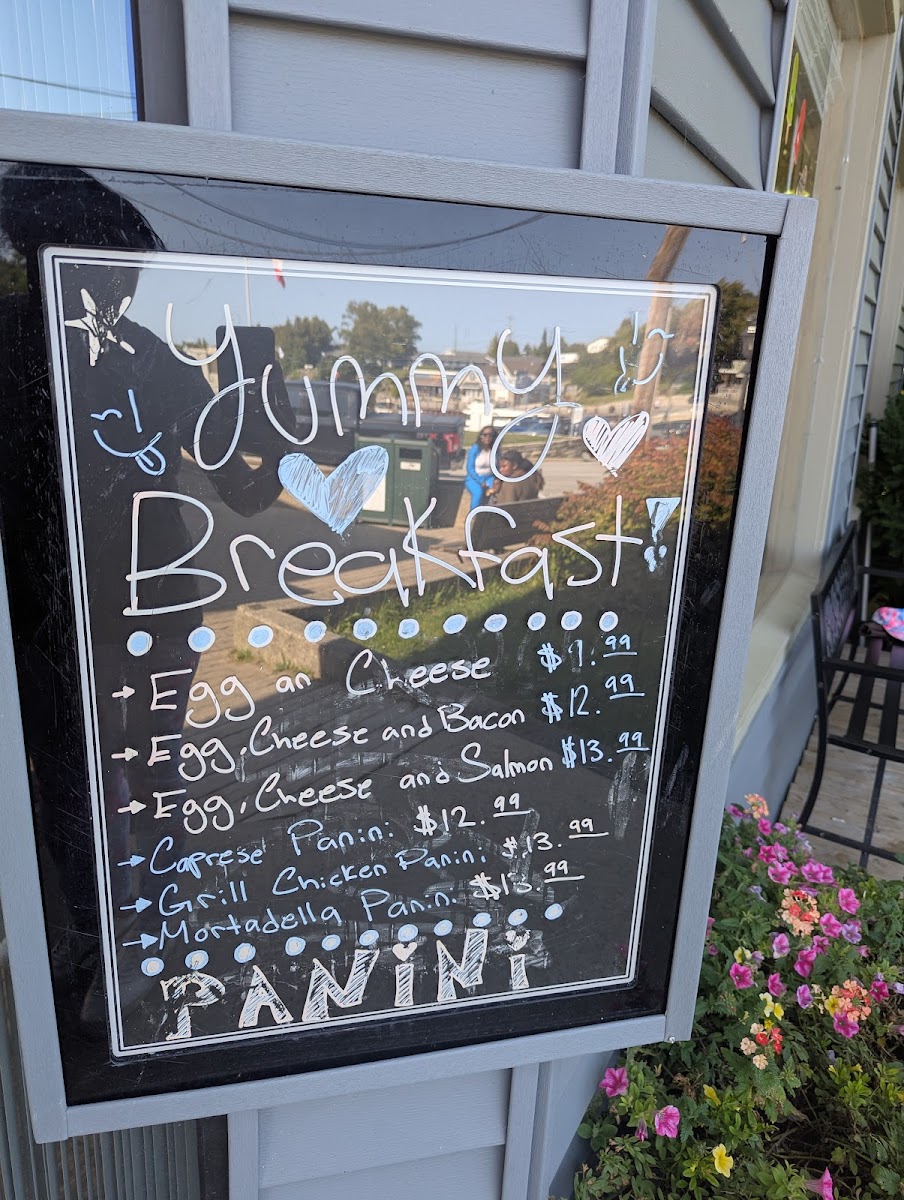 Yummy
Breakfast!
→ Egg an Cheese $9.99
→ Egg, Cheese and Bacon $12.99
→ Egg, Cheese and Salmon $13.99
→ Caprese Panini $12.99
→ Grill Chicken Panini $13.99
→ Mortadella Panini $13.99
PANiNi